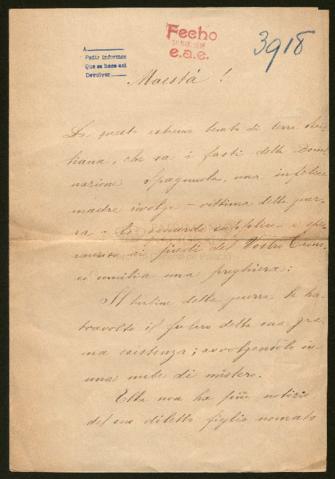 A
Pedir informes
Que se hace así
Devolver
Fecho
e.a.e.
3918
Maestà!
Da questo estremo lembo di terra
liana, che sa i fasti della Domi
nazione spagnuola, una infelice
madre - vittima della guer
ra - lo sguardo e spe
ai piedi del Vostro Trono,
umilia una preghiera:
Il turbine della guerra le ha
travolto il futuro della sua gra
ma esistenza; avvolgendolo in
una nube di mistero.
Ella non ha più notizie
del suo diletto figlio nomato